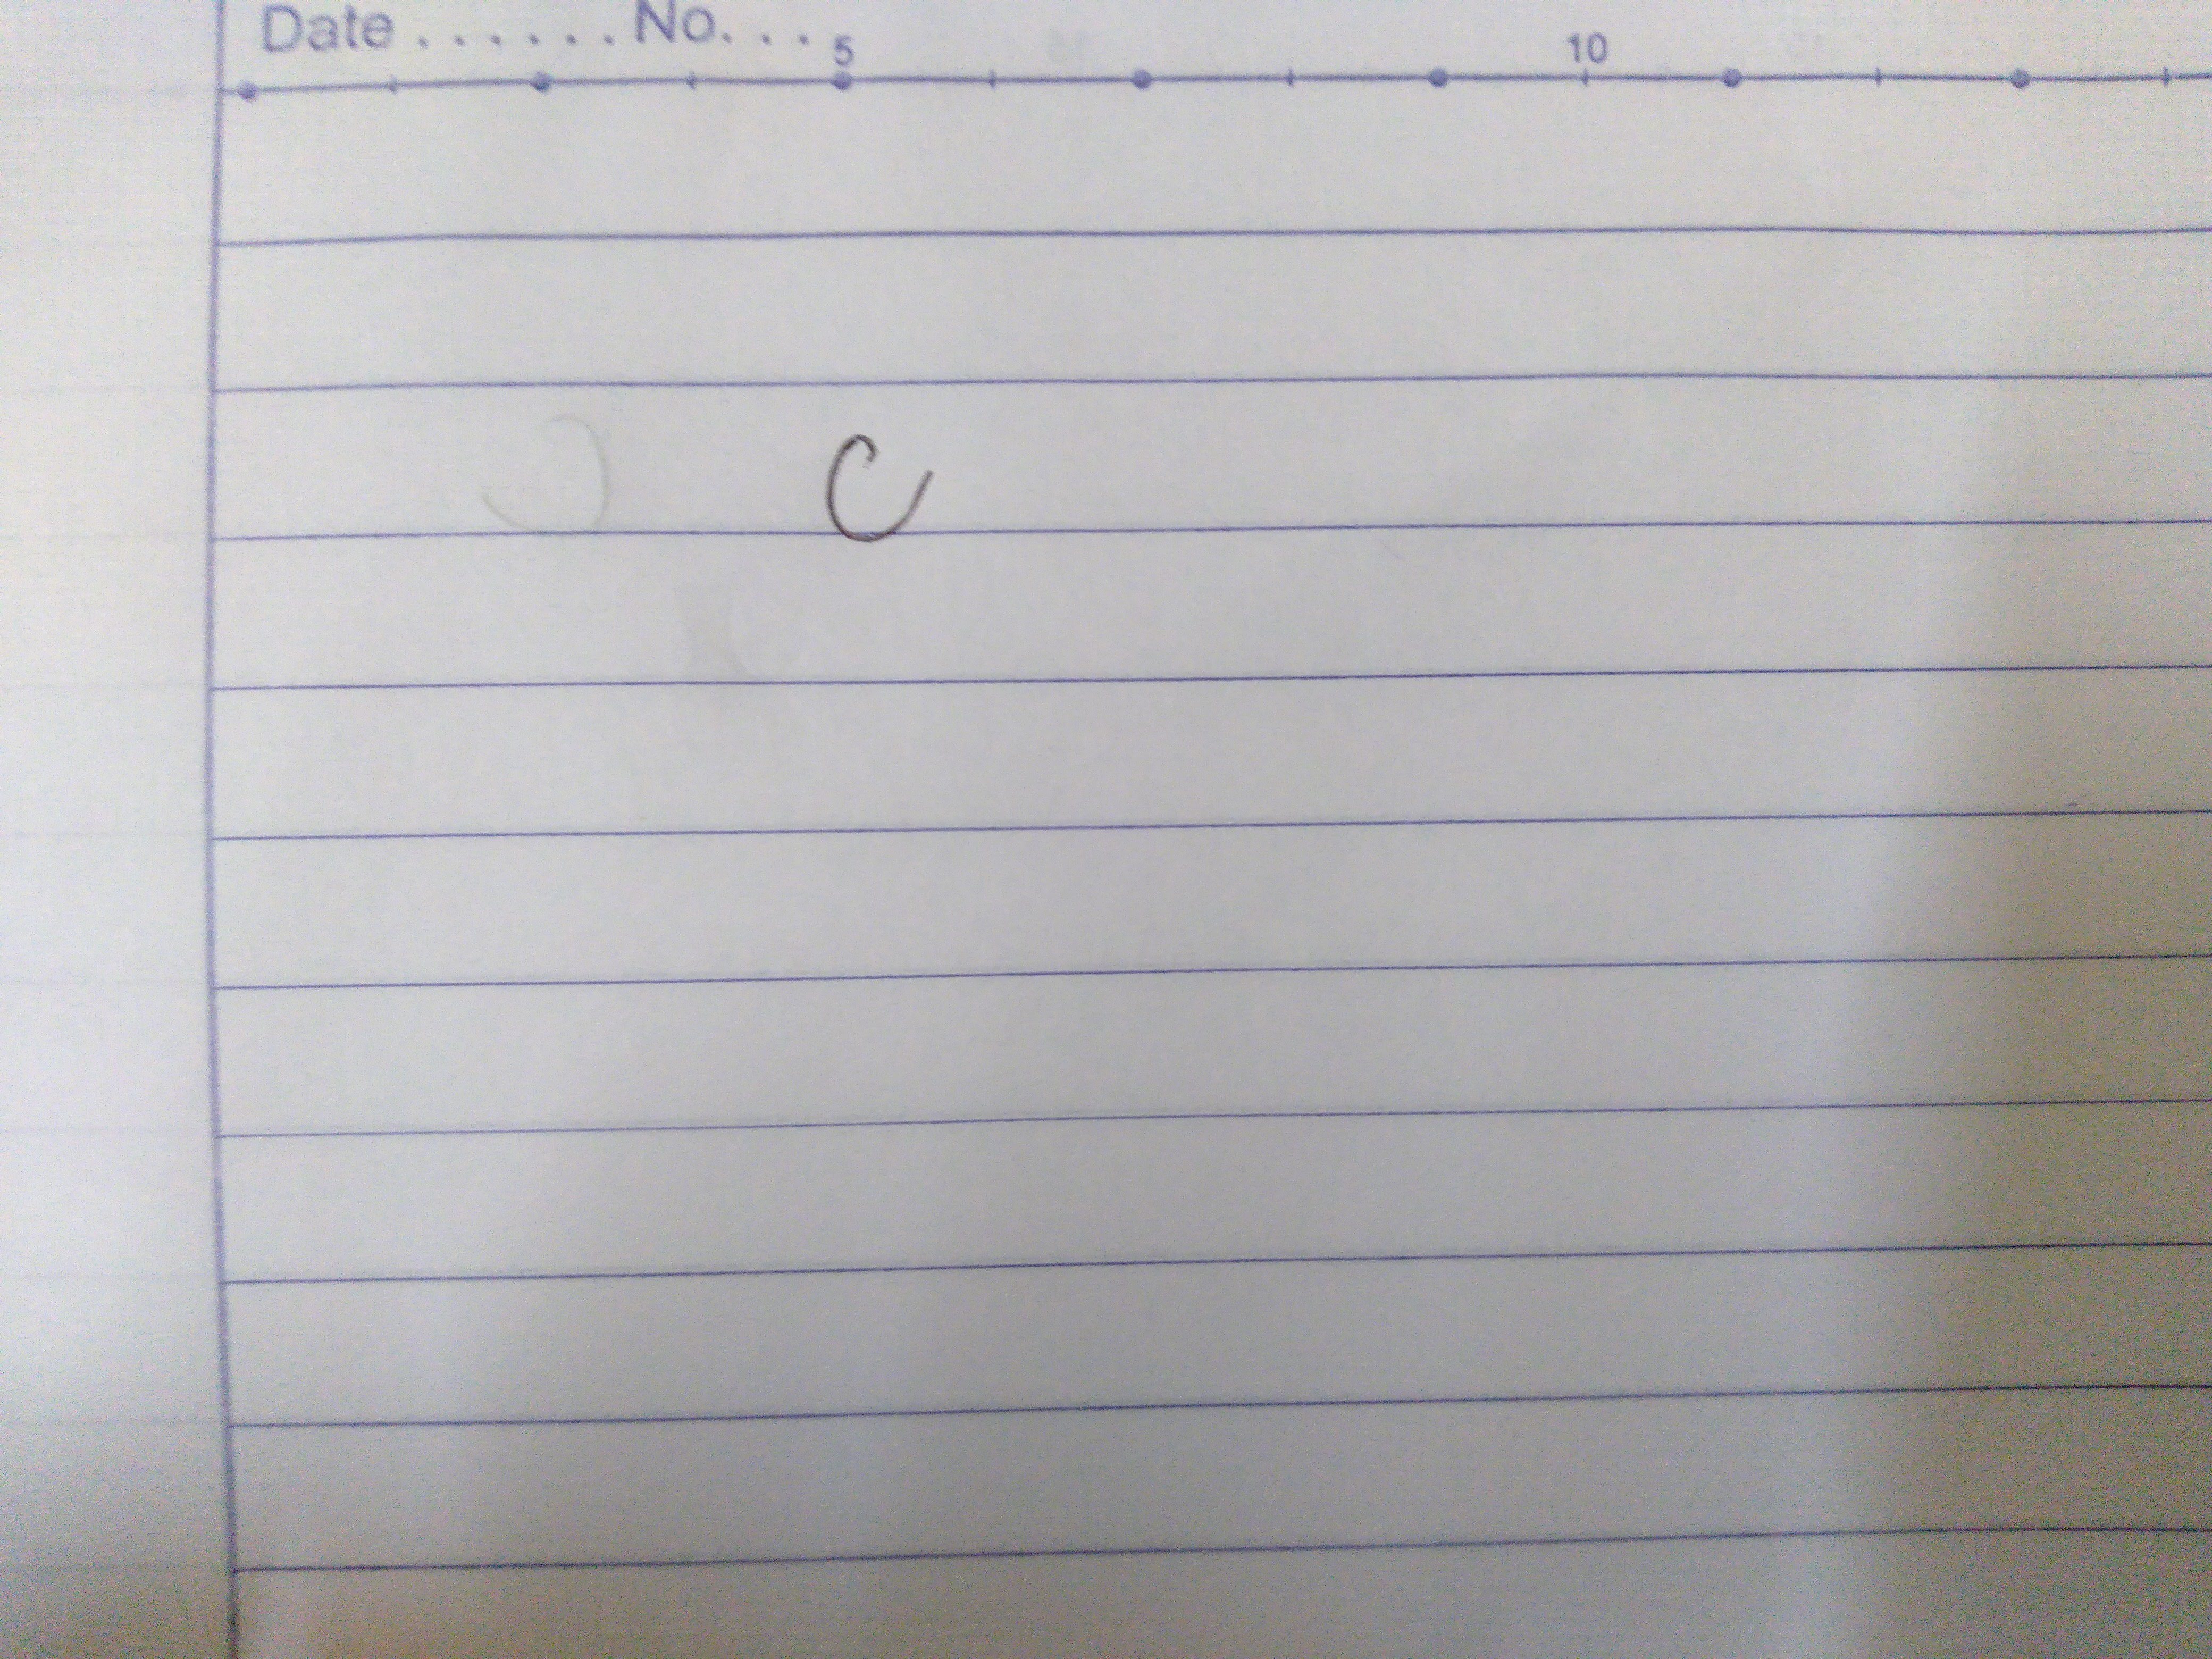 Date . . . . . . No. . . . 5 10
c